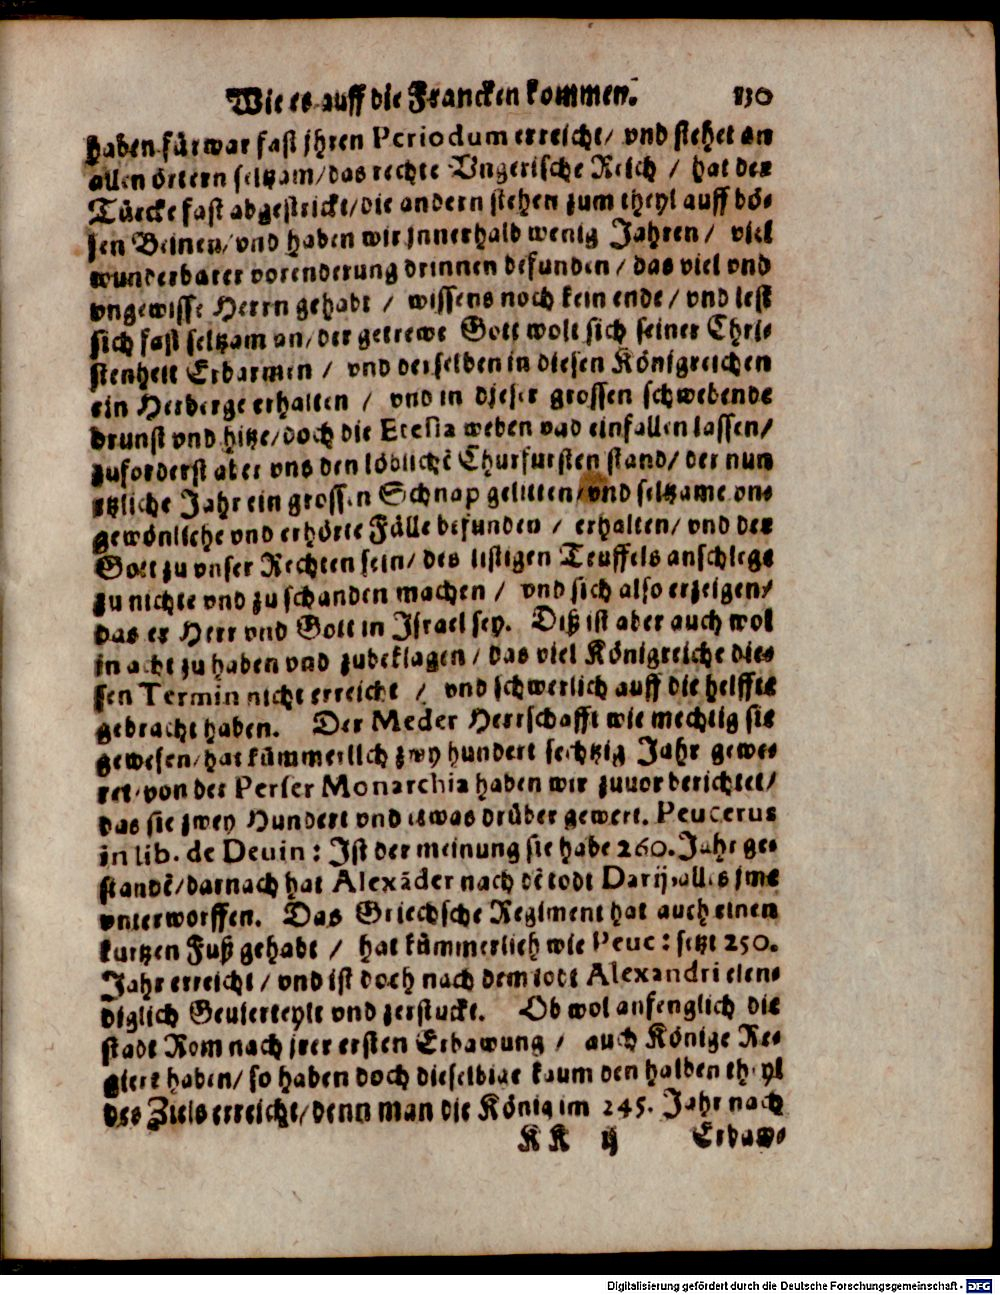 Wie es auff die Francken kommen. 130
haben fürwar fast jhren Periodum erreicht/ vnd stehet an
allen örtern seltzam/das rechte Vngerische Reich / hat der
Türcke fast abgestrickt/die andern stehen zum theyl auff bö-
sen Beinen/vnd haben wir jnnerhalb wenig Jahren / viel
wunderbarer vorenderung drinnen befunden / das viel vnd
vngewisse Herrn gehabt / wissens noch kein ende / vnd lest
sich fast seltzam an/der getrewe Gott wolt sich seiner Chri-
stenheit Erbarmen / vnd derselben in diesen Königreichen
ein Herberge erhalten / vnd in dieser grossen schwebende
brunst vnd hitze/doch die Etesia weben vnd einfallen lassen/
zuforderst aber vns den löblichẽ Churfursten stand/ der nun
etzliche Jahr ein grossen Schnap gelitten/vnd seltzame vn-
gewönliche vnd erhörte Fälle befunden / erhalten/ vnd der
Gott zu vnser Rechten sein/ des listigen Teuffels anschlege
zu nichte vnd zu schanden machen / vnd sich also erzeigen/
das er Herr vnd Gott in Israel sey. Diß ist aber auch wol
in acht zu haben vnd zubeklagen / das viel Königreiche die-
sen Termin nicht erreicht / vnd schwerlich auff die helffte
gebracht haben. Der Meder Herrschafft wie mechtig sie
gewesen/hat kümmerlich zwy hundert sechtzig Jahr gewe-
ret/von der Perser Monarchia haben wir zuuor berichtet/
das sie zwey Hundert vnd etwas drüber gewert. Peucerus
in lib. de Deuin : Ist der meinung sie habe 260. Jahr ge-
standẽ/darnach hat Alexãder nach dẽ todt Darij, alles jme
vnterworffen. Das Griechsche Regiment hat auch einen
kurtzen Fuß gehabt / hat kümmerlich wie Peuc : setzt 250.
Jahr erreicht / vnd ist doch nach dem todt Alexandri elen-
diglich Geuierteylt vnd zerstuckt. Ob wol anfenglich die
stadt Rom nach jrer ersten Erbawung / auch Könige Re-
giert haben/ so haben doch dieselbige kaum den halben theyl
des Ziels erreicht/denn man die König im 245. Jahr nach
KK ij Erbaw-
Digitalisierung gefördert durch die Deutsche Forschungsgemeinschaft - DFG